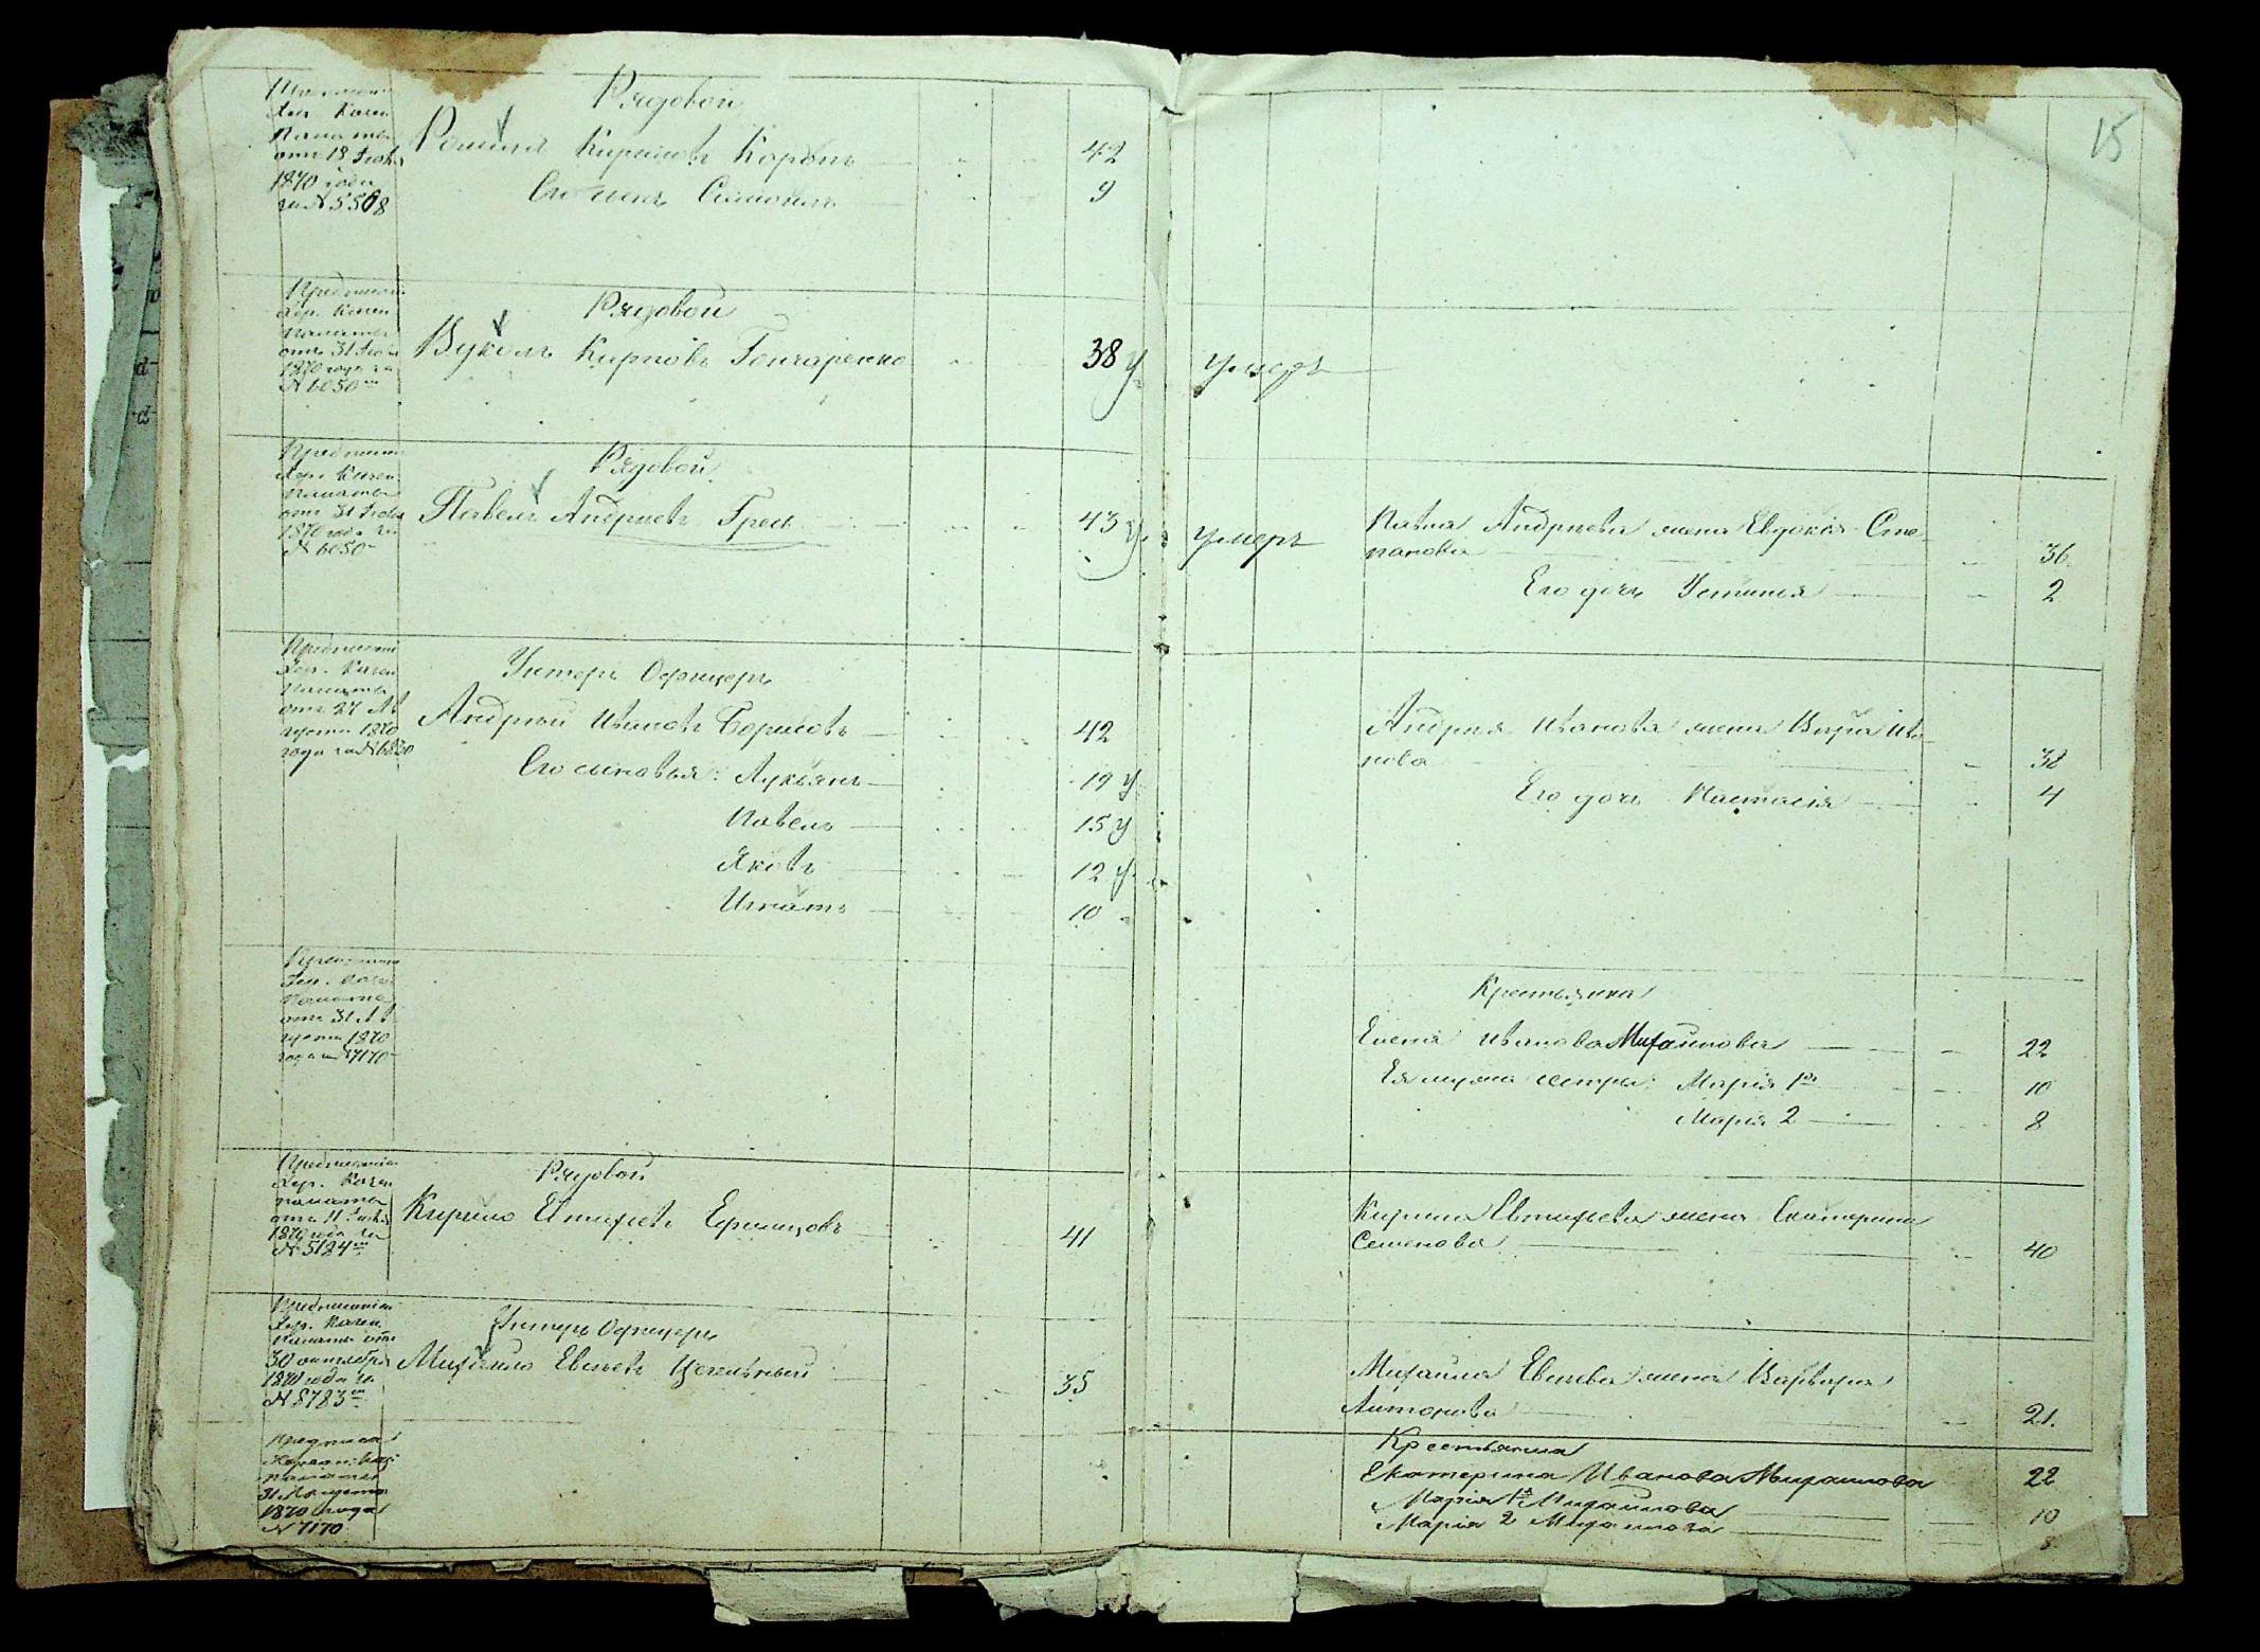 15
Рядовой
Кирилов Коробъ 42
Его сынъ 9
1870 года
за № 5508
Предписаніе
Хер. Казен
палаты
отъ 31 Іюля
1870 года за
№ 6050
Рядовой
Вуколъ Карповъ Гончаренко 38 у
умеръ
Предписаніе
Хер. Казен
палаты
отъ 31 Іюля
1870 года за
№ 6050
Рядовой
Павелъ Андреевъ Грекъ 43 у
умеръ
Павла Андреева жена Евдокія Сте
панова 36
Его дочь Устинья 2
Предписаніе
Хер. Казен
палаты
отъ 27 Ав
густа 1870
года за №
Унтеръ Офицеръ
Андрей Ивановъ Борисовъ 42
Его сыновья: Лукьянъ 19 у
Павелъ 15 у
Яковъ 12 у
Игнатъ 10
Андрея Иванова жена Ива
нова 38
Его дочь Настасія 4
Казен
палаты
отъ 31 Ав
густа 1870
года за № 7170
Крестьянка
Елена Иванова Михайлова 22
Ея мужа сестры: Марія 1я 10
Марія 2 8
Предписаніе
Хер. Казен
палаты
отъ 11
1870 года за
№ 5124
Рядовой
Кирило Евтифѣевъ 41
Кирила Евтифѣева жена Екатерина
Семенова 40
Предписаніе
Хер. Казен
палаты отъ
30 октября
1870 года за
№ 8783
Унтеръ Офицеръ
Михайло Евсѣевъ 35
Михайла Евсѣева жена Варвара
Антонова 21.
Предписа
Херсон. Каз
палаты
31 Августа
1870 года
№ 7170
Крестьянка
Екатерина Иванова Михайлова 22
Марія 1я Михайлова 10
Марія 2 Михайлова 8